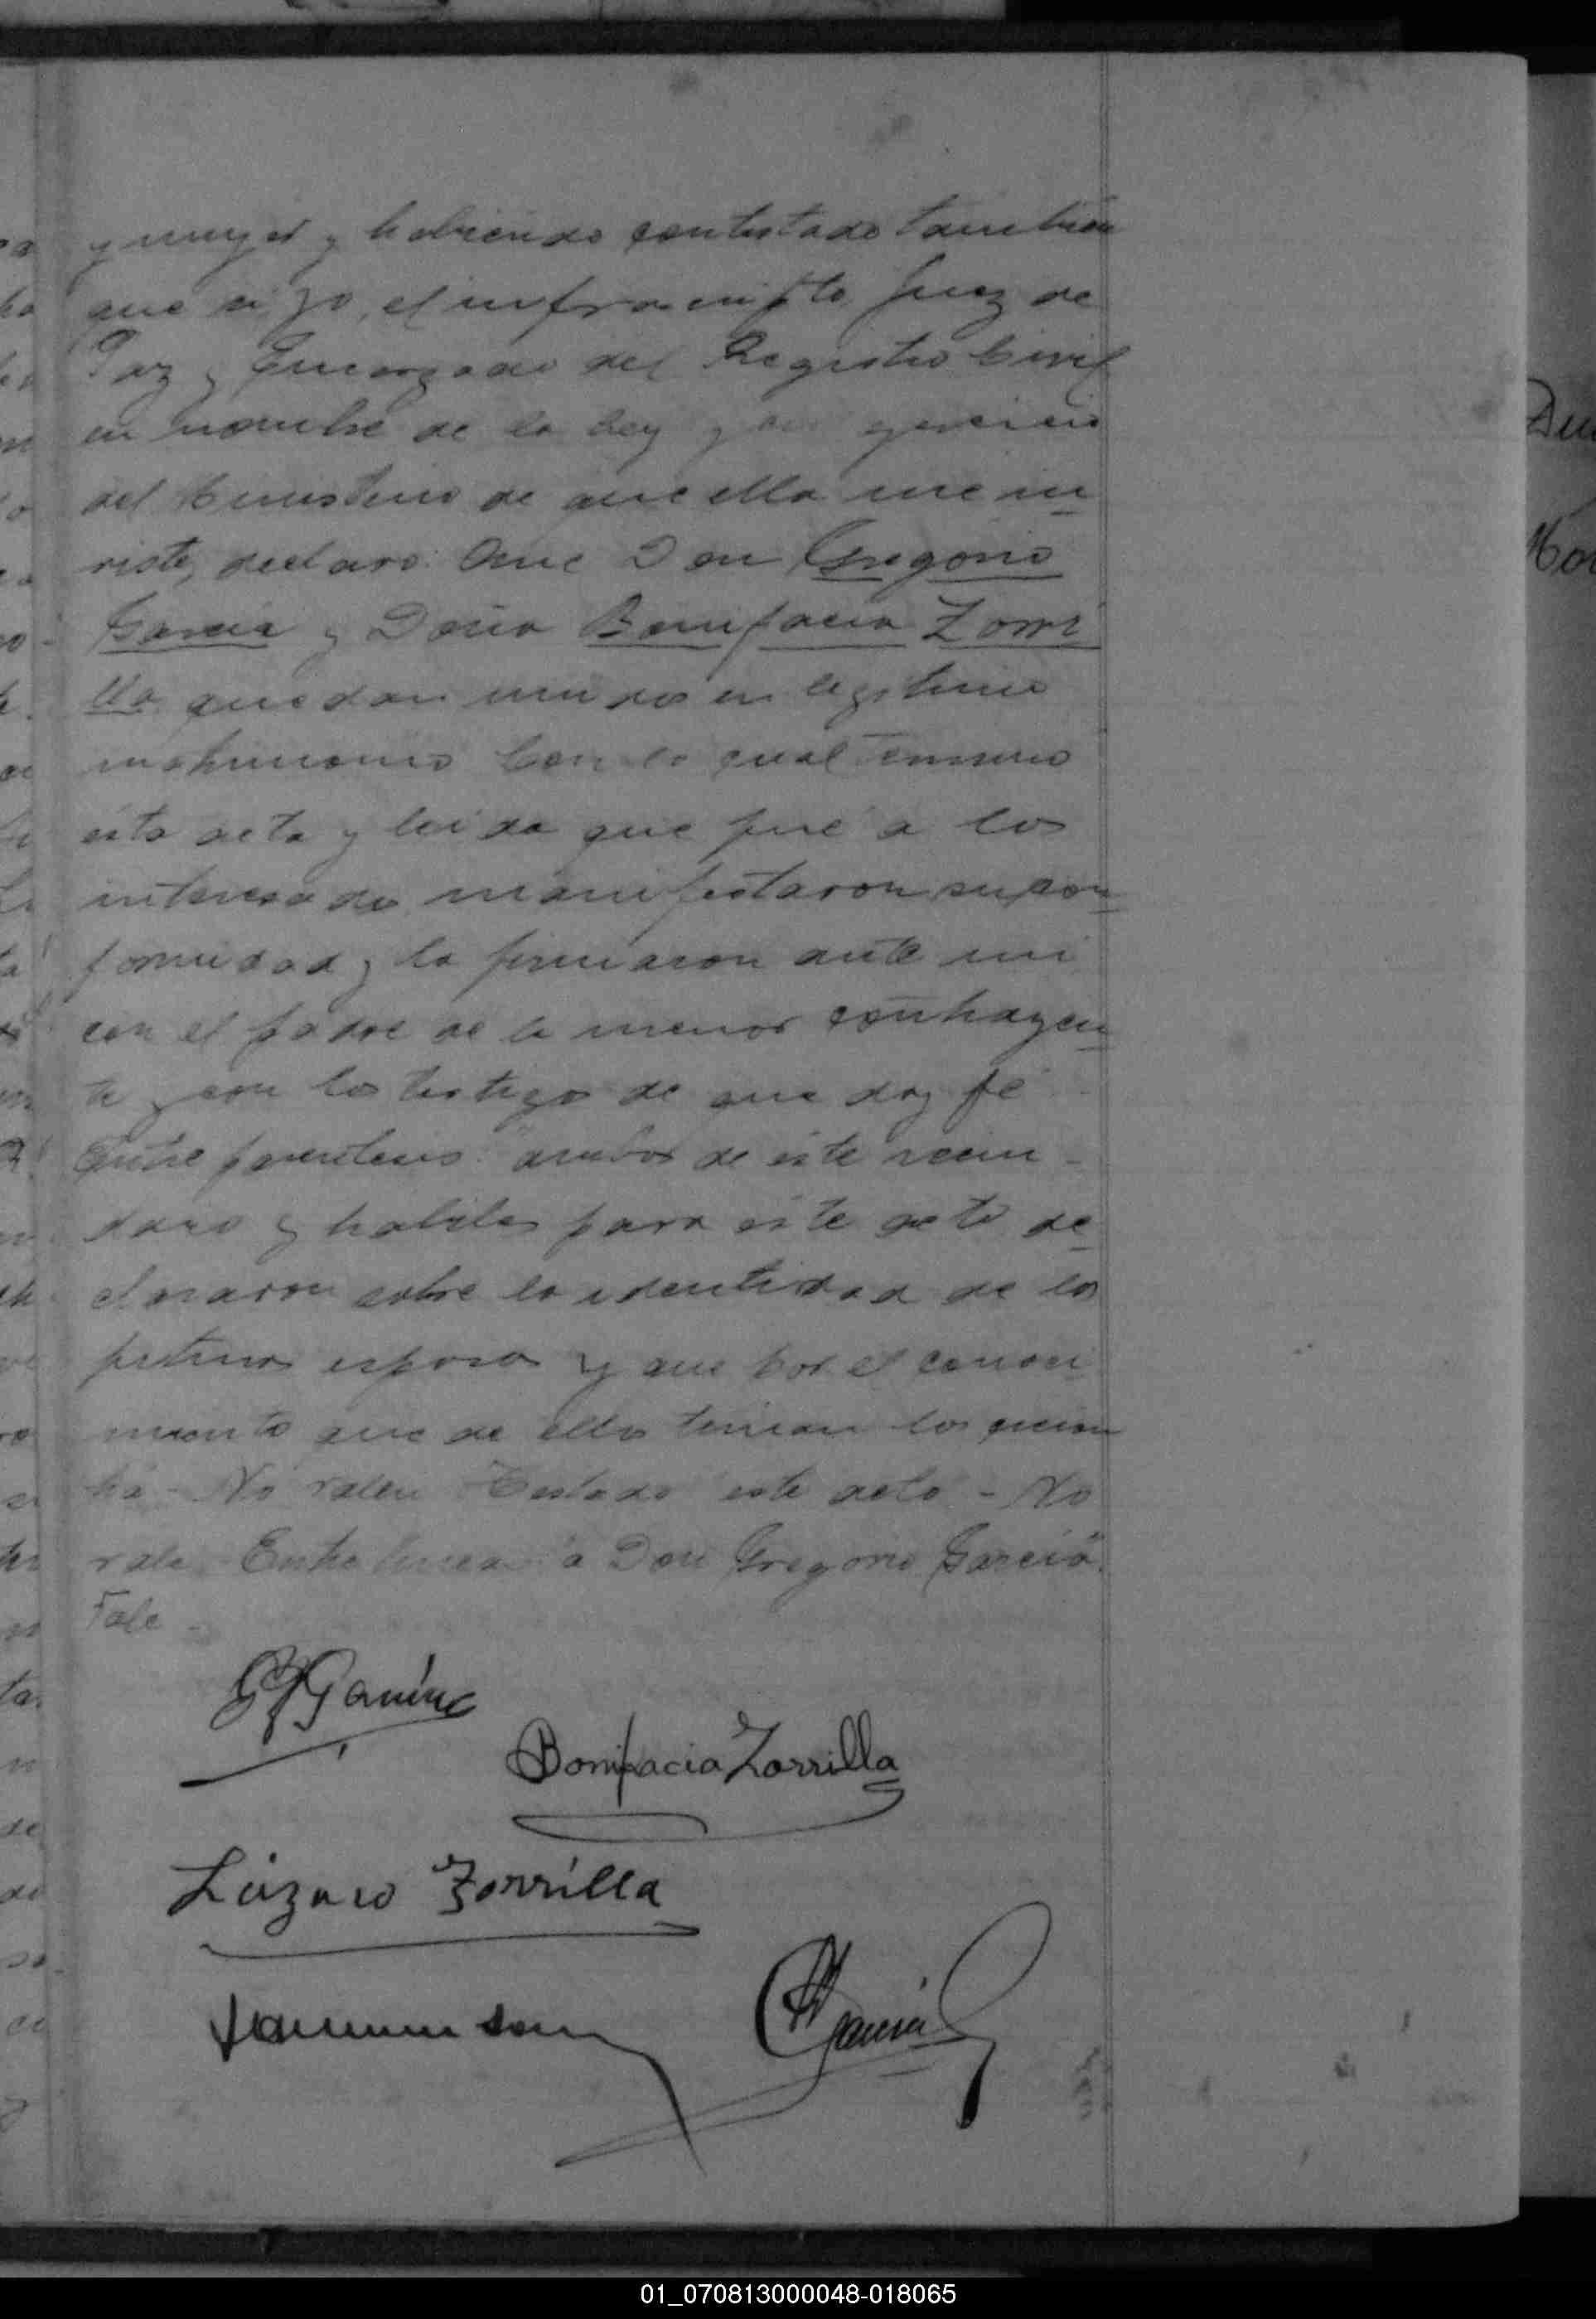 y muger y habiendo contestado tambien
que si yo, el infrascripto Juez de
Paz y Encargado del Registro Civil
en nombre de la ley y en ejercicio
del Ministerio de que ella me in
viste, declaro: Que Don Gregorio
Garcia y Doña Bonifacia Zorri
lla quedan unidos en legitimo
matrimonio Con lo cual termino
esta acta y leida que fué a los
interesados manifestaron su con
formidad y la firmaron ante mi
con el padre de la menor contrayen
te y con los testigos de que doy fé
Entre parentesis: ambos de este vecin-
dario y habiles para este acto de
clararon sobre la identidad de los
futuros esposos y que por el conoci
miento que de ellos tenian los
No valen Testado este acto - No
vale. Entre lineas "a Don Gregorio Garcia"
Vale -
Bonifacia Zorrilla
Lázaro Zorrilla
01_070813000048-018065